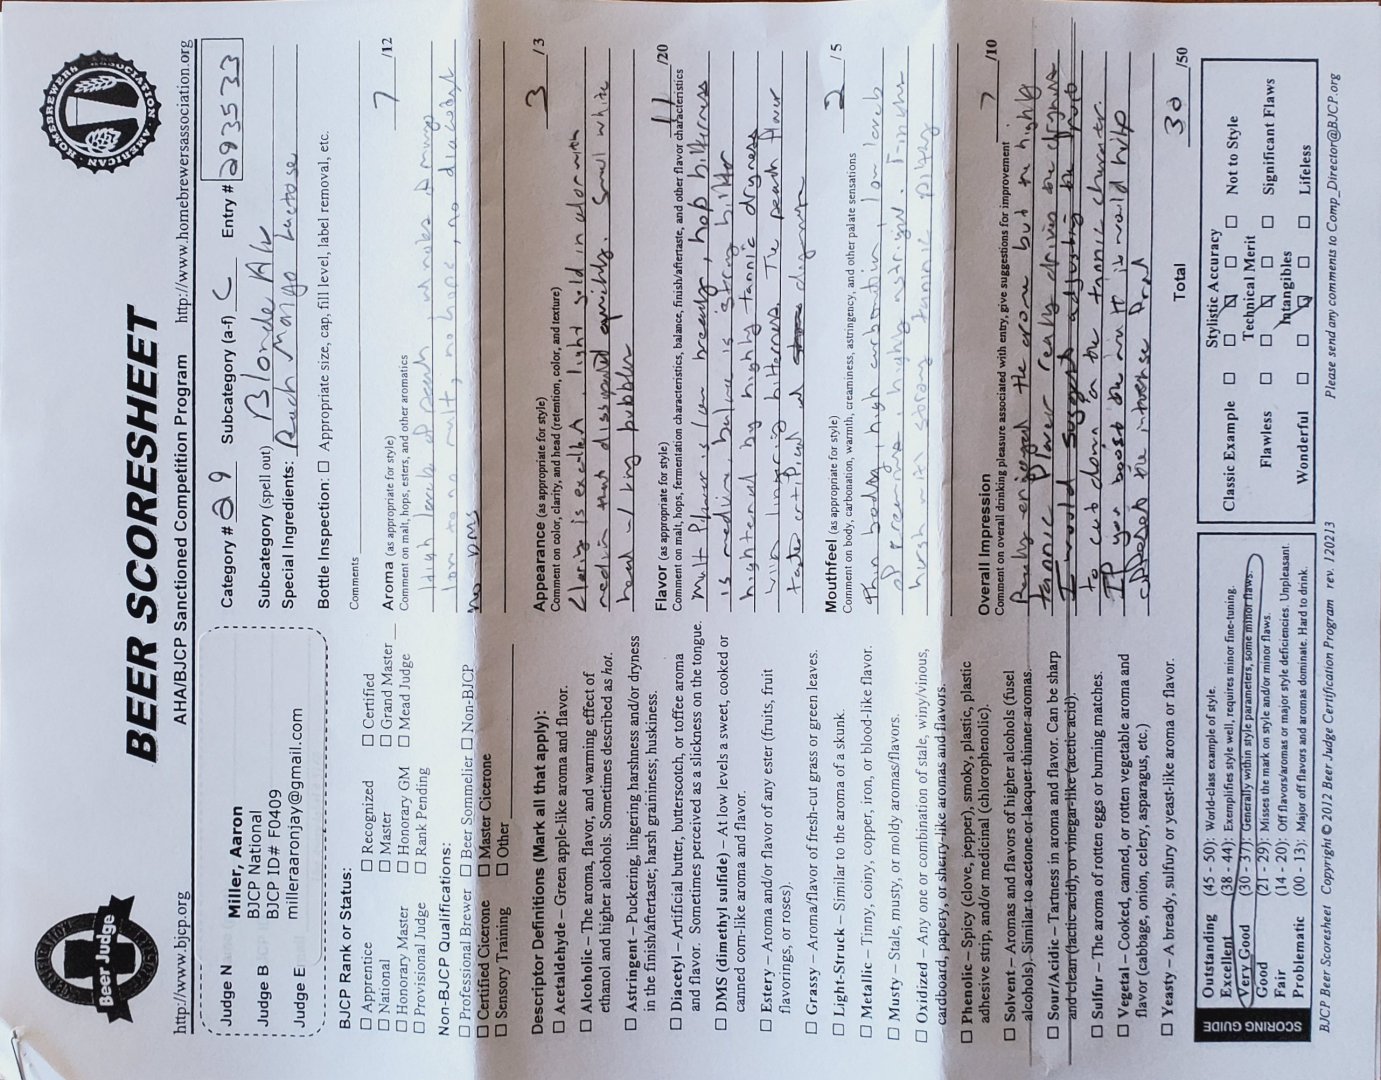 BEER SCORESHEET
AHA/BJCP Sanctioned Competition Program
http://www.bjcp.org
http://www.homebrewersassociation.org
Beer Judge
AMERICAN HOMEBREWERS ASSOCIATION
Judge N
Miller, Aaron
BJCP National
Judge B
BJCP ID# F0409
Judge E
milleraaronjay@gmail.com
BJCP Rank or Status:
☐ Apprentice ☐ Recognized ☐ Certified
☐ National ☐ Master ☐ Grand Master
☐ Honorary Master ☐ Honorary GM ☐ Mead Judge
☐ Provisional Judge ☐ Rank Pending
Non-BJCP Qualifications:
☐ Professional Brewer ☐ Beer Sommelier ☐ Non-BJCP
☐ Certified Cicerone ☐ Master Cicerone
☐ Sensory Training ☐ Other
Descriptor Definitions (Mark all that apply):
☐ Acetaldehyde – Green apple-like aroma and flavor.
☐ Alcoholic – The aroma, flavor, and warming effect of
ethanol and higher alcohols. Sometimes described as hot.
☐ Astringent – Puckering, lingering harshness and/or dryness
in the finish/aftertaste; harsh graininess; huskiness.
☐ Diacetyl – Artificial butter, butterscotch, or toffee aroma
and flavor. Sometimes perceived as a slickness on the tongue.
☐ DMS (dimethyl sulfide) – At low levels a sweet, cooked or
canned corn-like aroma and flavor.
☐ Estery – Aroma and/or flavor of any ester (fruits, fruit
flavorings, or roses).
☐ Grassy – Aroma/flavor of fresh-cut grass or green leaves.
☐ Light-Struck – Similar to the aroma of a skunk.
☐ Metallic – Tinny, coiny, copper, iron, or blood-like flavor.
☐ Musty – Stale, musty, or moldy aromas/flavors.
☐ Oxidized – Any one or combination of stale, winy/vinous,
cardboard, papery, or sherry-like aromas and flavors.
☐ Phenolic – Spicy (clove, pepper), smoky, plastic, plastic
adhesive strip, and/or medicinal (chlorophenolic).
☐ Solvent – Aromas and flavors of higher alcohols (fusel
alcohols). Similar to acetone or lacquer thinner aromas.
☐ Sour/Acidic – Tartness in aroma and flavor. Can be sharp
and clean (lactic acid), or vinegar-like (acetic acid).
☐ Sulfur – The aroma of rotten eggs or burning matches.
☐ Vegetal – Cooked, canned, or rotten vegetable aroma and
flavor (cabbage, onion, celery, asparagus, etc.)
☐ Yeasty – A bready, sulfury or yeast-like aroma or flavor.
SCORING GUIDE
Outstanding (45 - 50): World-class example of style.
Excellent (38 - 44): Exemplifies style well, requires minor fine-tuning.
Very Good (30 - 37): Generally within style parameters, some minor flaws.
Good (21 - 29): Misses the mark on style and/or minor flaws.
Fair (14 - 20): Off flavors/aromas or major style deficiencies. Unpleasant.
Problematic (00 - 13): Major off flavors and aromas dominate. Hard to drink.
Category # 29 Subcategory (a-f) C Entry # 293533
Subcategory (spell out) Blonde Ale
Special Ingredients: Peach Mango Lactose
Bottle Inspection: ☐ Appropriate size, cap, fill level, label removal, etc.
Comments
Aroma (as appropriate for style) 7 /12
Comment on malt, hops, esters, and other aromatics
High levels of peach, w/ mango
low malt, no hops, no diacetyl
no DMS
Appearance (as appropriate for style) 3 /3
Comment on color, clarity, and head (retention, color, and texture)
Clarity is excellent, light gold in color with
medium head that dissipated quickly. Small white
head w/ big bubbles
Flavor (as appropriate for style) 11 /20
Comment on malt, hops, fermentation characteristics, balance, finish/aftertaste, and other flavor characteristics
Malt flavor is low bready, hop bitterness
is medium, balance is strong bitter
heightened by highly tannic dryness
with lingering bitterness. The peach flavor
artificial
Mouthfeel (as appropriate for style) 2 /5
Comment on body, carbonation, warmth, creaminess, astringency, and other palate sensations
Thin body, high carbonation, low level
of creaminess, highly astringent. Finishe
harsh with strong tannic
Overall Impression 7 /10
Comment on overall drinking pleasure associated with entry, give suggestions for improvement
Really enjoyed the aroma but the highly
tannic flavor really drives the dryness
I would suggest adjusting the
to cut down on the tannic character.
If you boost the it would help
offset the intense
Total 30 /50
Stylistic Accuracy
Classic Example ☐ ☐ ☒ ☐ ☐ Not to Style
Technical Merit
Flawless ☐ ☐ ☒ ☐ ☐ Significant Flaws
Intangibles
Wonderful ☐ ☐ ☒ ☐ ☐ Lifeless
BJCP Beer Scoresheet Copyright © 2012 Beer Judge Certification Program rev. 120213
Please send any comments to Comp_Director@BJCP.org